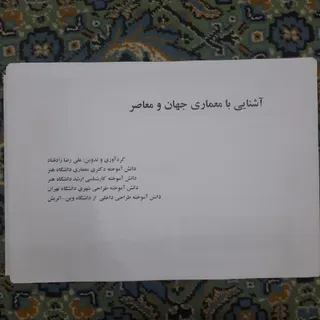 آشنایی با معماری جهان و معاصر
گردآوری و تدوین: علی رضا رادفناد
دانش آموخته دکتری معماری دانشگاه هنر
دانش آموخته کارشناسی ارشد دانشگاه هنر
دانش آموخته طراحی شهری دانشگاه تهران
دانش آموخته طراحی داخلی از دانشگاه وین-اتریش